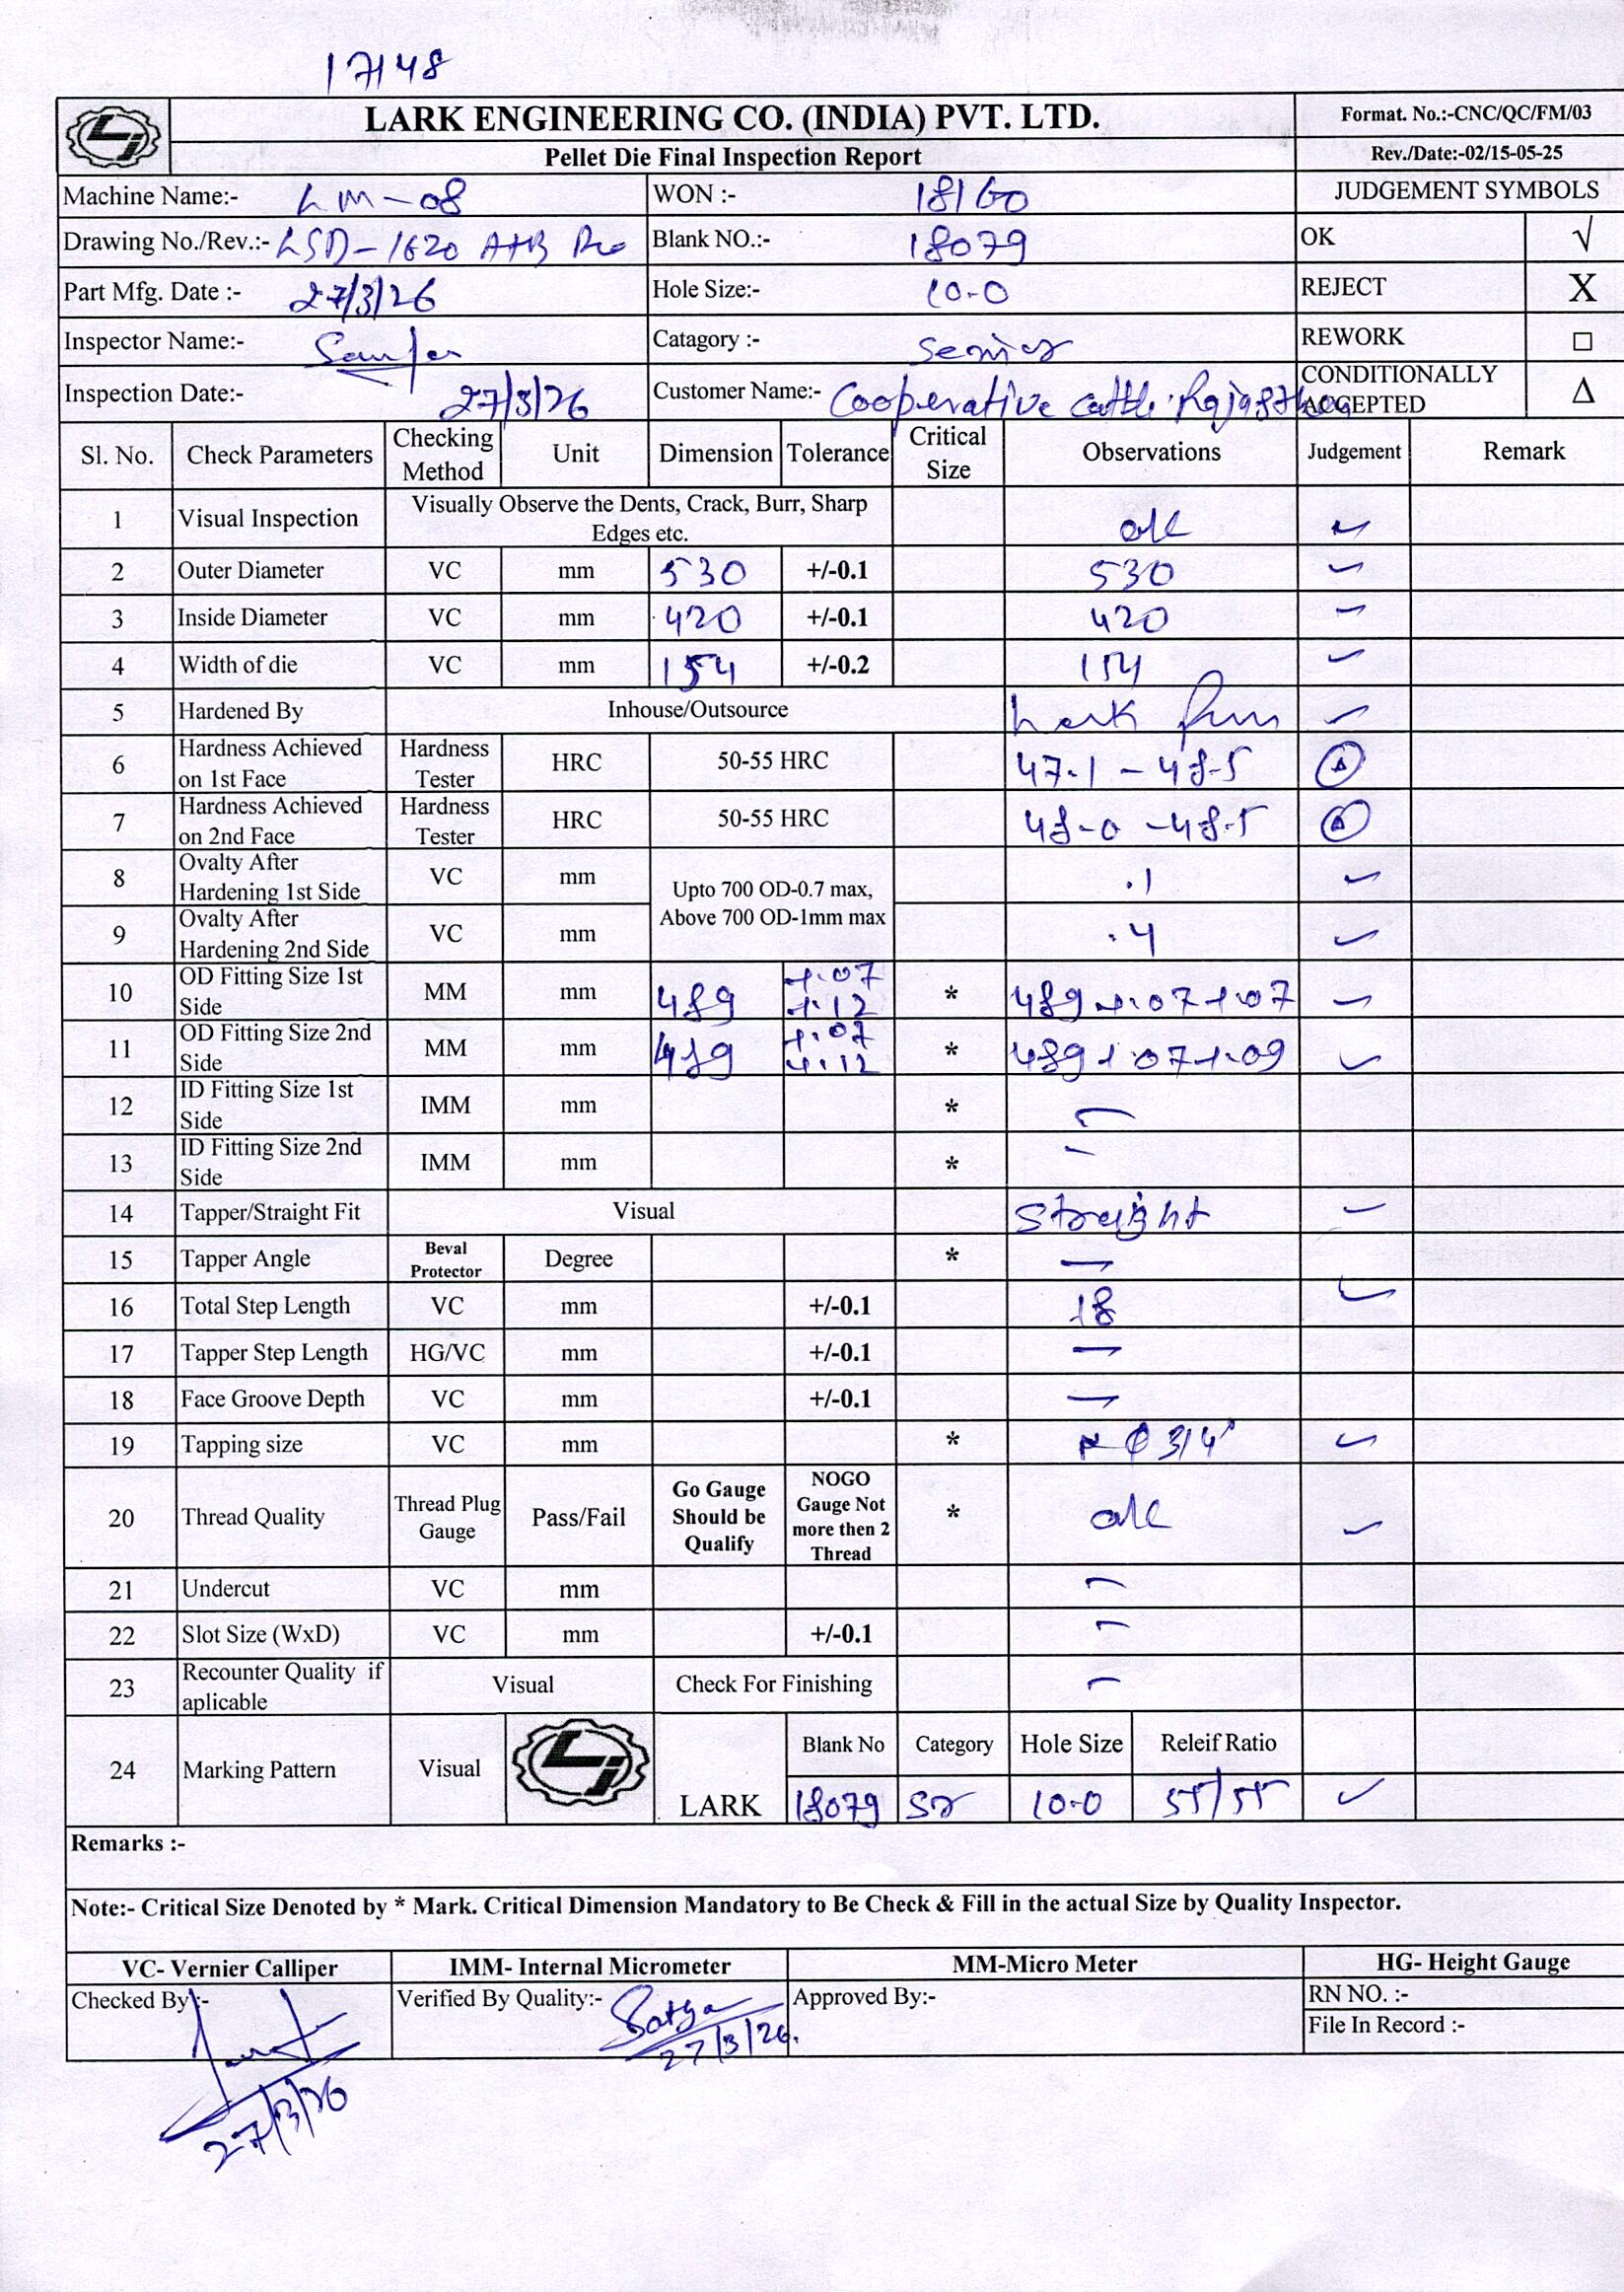 17148
LARK ENGINEERING CO. (INDIA) PVT. LTD.
Format. No.:-CNC/QC/FM/03
Pellet Die Final Inspection Report
Rev./Date:-02/15-05-25
Machine Name:- LM-08 WON :- 18160 JUDGEMENT SYMBOLS
Drawing No./Rev.:- LSD-1620 A+B Blank NO.:- 18079 OK √
Part Mfg. Date :- 27/3/26 Hole Size:- 10.0 REJECT X
Inspector Name:- Catagory :- Senior REWORK □
Inspection Date:- 27/3/26 Customer Name:- Cooperative cattle Rajasthan CONDITIONALLY ACCEPTED Δ
Sl. No. Check Parameters Checking Method Unit Dimension Tolerance Critical Size Observations Judgement Remark
1 Visual Inspection Visually Observe the Dents, Crack, Burr, Sharp Edges etc. ok ✓
2 Outer Diameter VC mm 530 +/-0.1 530 ✓
3 Inside Diameter VC mm 420 +/-0.1 420 ✓
4 Width of die VC mm 154 +/-0.2 154 ✓
5 Hardened By Inhouse/Outsource Lark ✓
6 Hardness Achieved on 1st Face Hardness Tester HRC 50-55 HRC 47.1 - 48.5 Δ
7 Hardness Achieved on 2nd Face Hardness Tester HRC 50-55 HRC 48.0 - 48.5 Δ
8 Ovalty After Hardening 1st Side VC mm Upto 700 OD-0.7 max, Above 700 OD-1mm max .1 ✓
9 Ovalty After Hardening 2nd Side VC mm .4 ✓
10 OD Fitting Size 1st Side MM mm 489 +.07 +.12 * 489 +.07 +.07 ✓
11 OD Fitting Size 2nd Side MM mm 489 +.07 +.12 * 489 +.07 +.09 ✓
12 ID Fitting Size 1st Side IMM mm * —
13 ID Fitting Size 2nd Side IMM mm * —
14 Tapper/Straight Fit Visual Straight ✓
15 Tapper Angle Beval Protector Degree * —
16 Total Step Length VC mm +/-0.1 18 ✓
17 Tapper Step Length HG/VC mm +/-0.1 —
18 Face Groove Depth VC mm +/-0.1 —
19 Tapping size VC mm * φ 3/4" ✓
20 Thread Quality Thread Plug Gauge Pass/Fail Go Gauge Should be Qualify NOGO Gauge Not more then 2 Thread * ok ✓
21 Undercut VC mm —
22 Slot Size (WxD) VC mm +/-0.1 —
23 Recounter Quality if aplicable Visual Check For Finishing —
24 Marking Pattern Visual LARK Blank No Category Hole Size Releif Ratio
18079 Sr 10.0 55/55 ✓
Remarks :-
Note:- Critical Size Denoted by * Mark. Critical Dimension Mandatory to Be Check & Fill in the actual Size by Quality Inspector.
VC- Vernier Calliper IMM- Internal Micrometer MM-Micro Meter HG- Height Gauge
Checked By :- Verified By Quality:- Satya Approved By:- RN NO. :-
27/3/26. File In Record :-
27/3/26